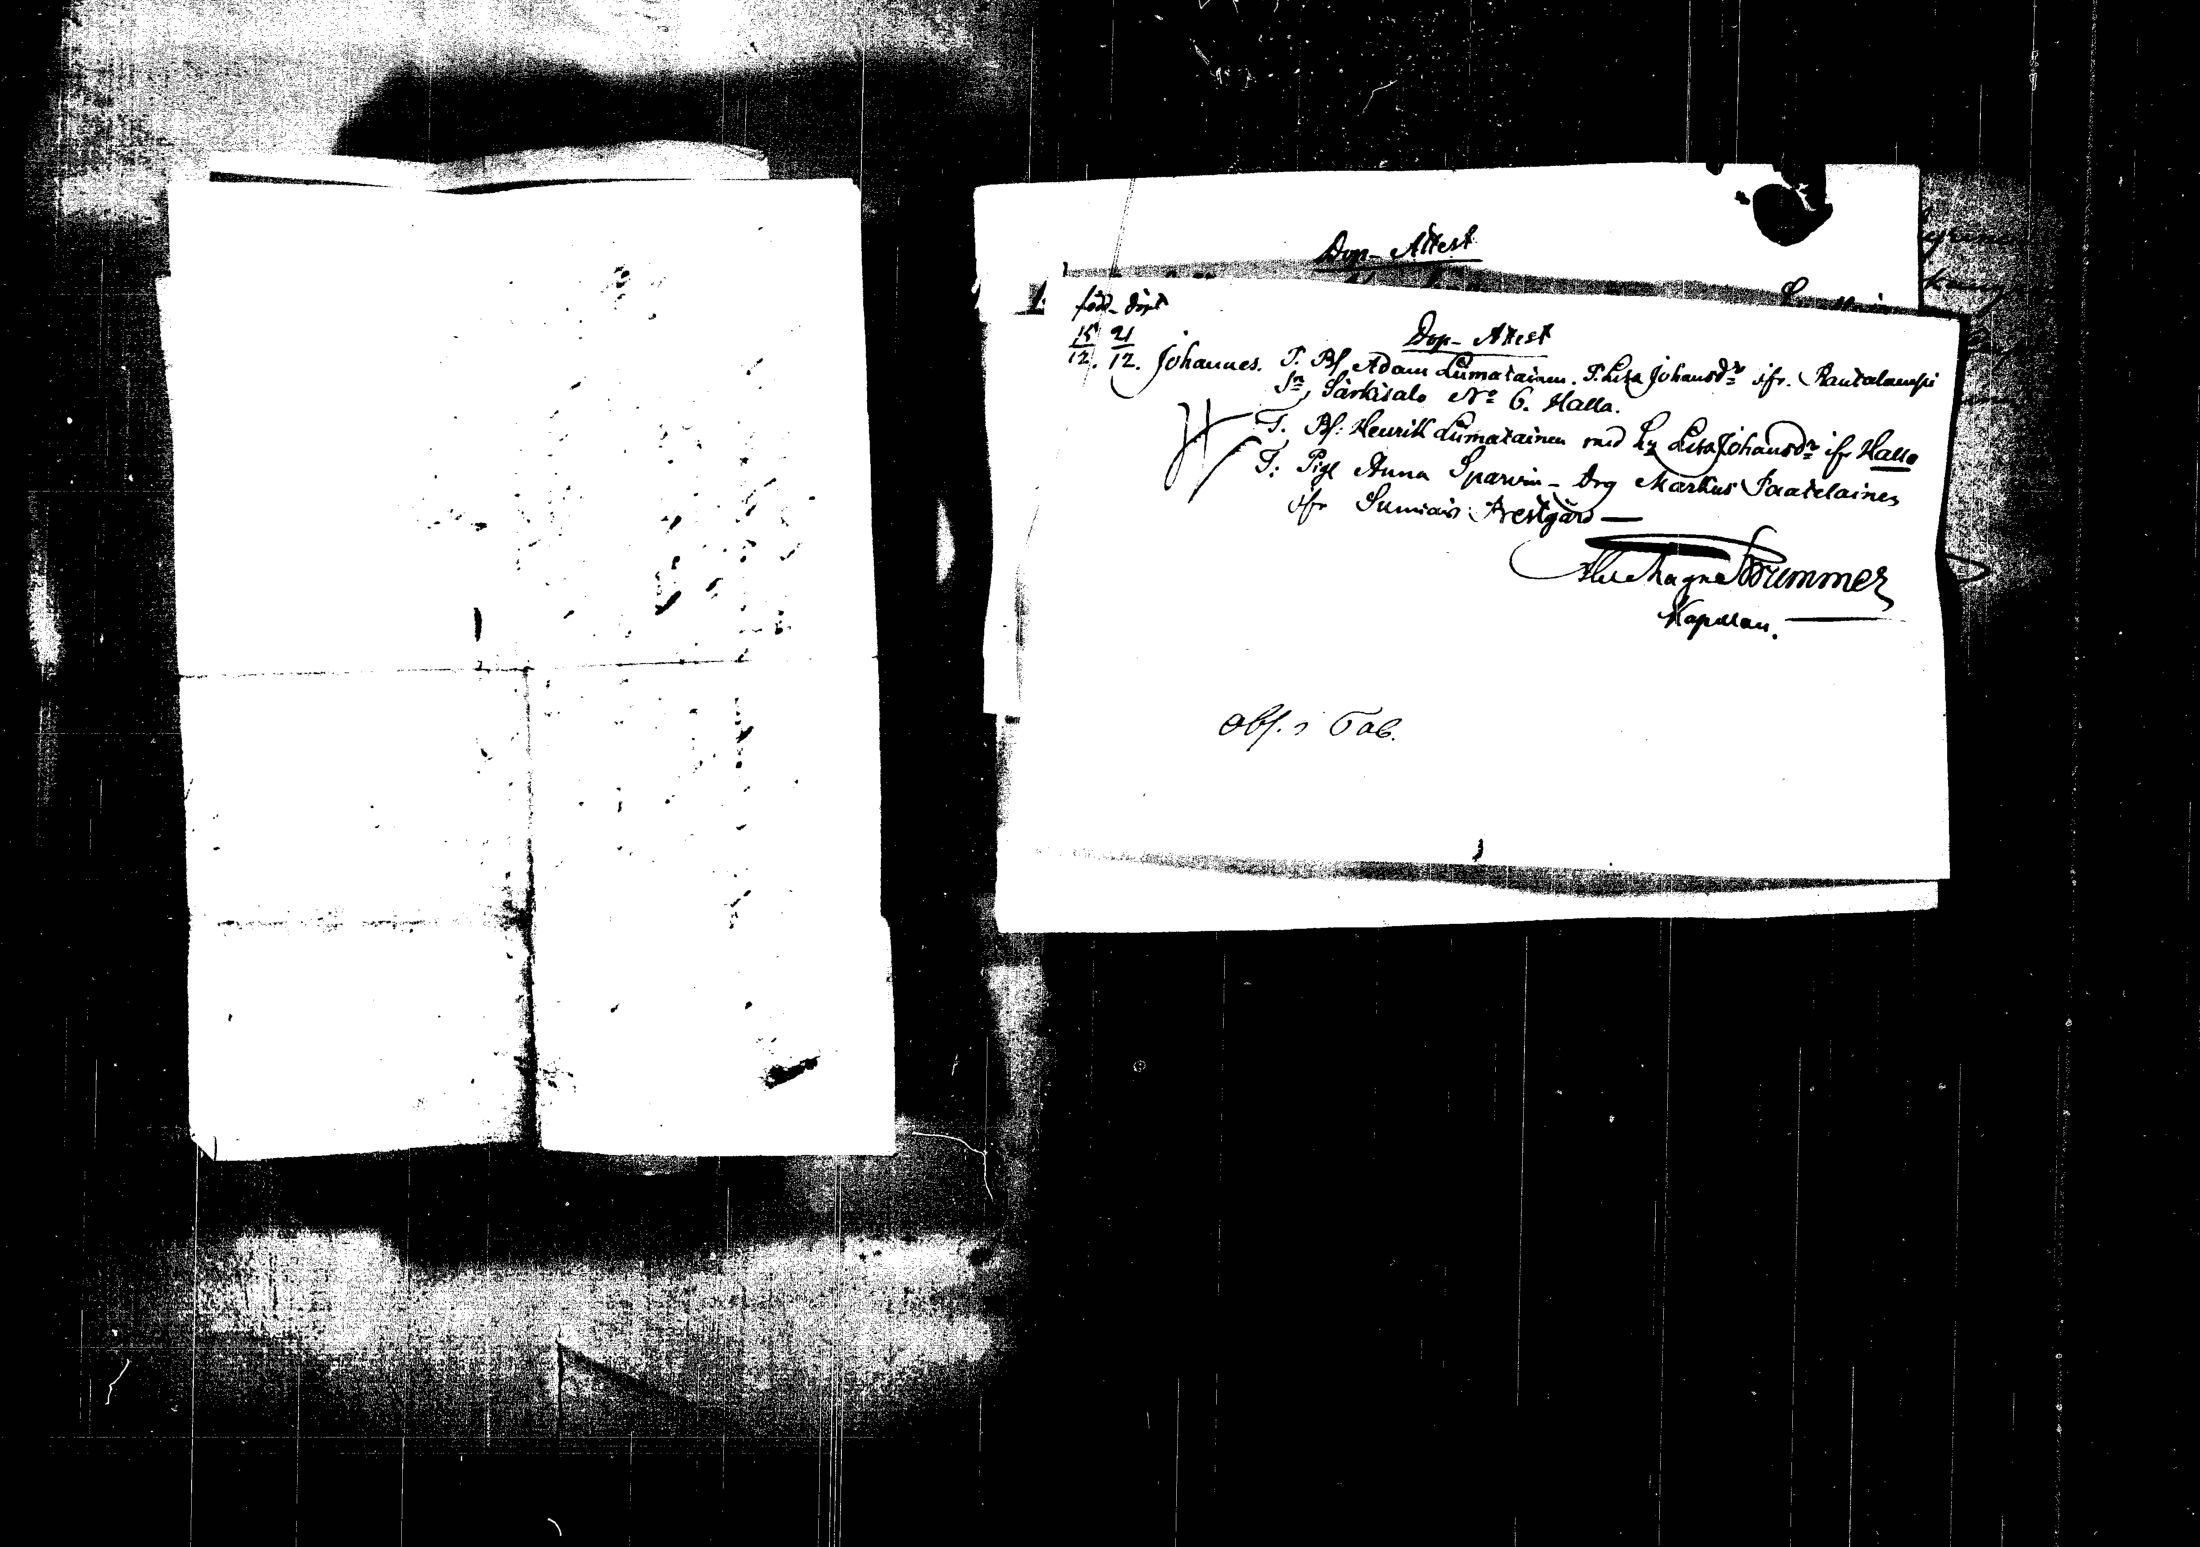 Dop- Attest
född- döpt
Dop- Attest
15/12. 21/12. Johannes. F. Bd. Adam Lumatainen. F. Lisa Johansdr ifr. Rautalampi
Sn, Särkisalo No 6. Halla.
F. Bd: Henrik Lumatainen med h. Lisa Johansdr ifr Halla
F: Pig Anna Sparvin - Drg Markus Paatelainen
ifr Sumiais Prestgård —
Alex Magn Brummer
Kapellan.
Obs. i Tab.